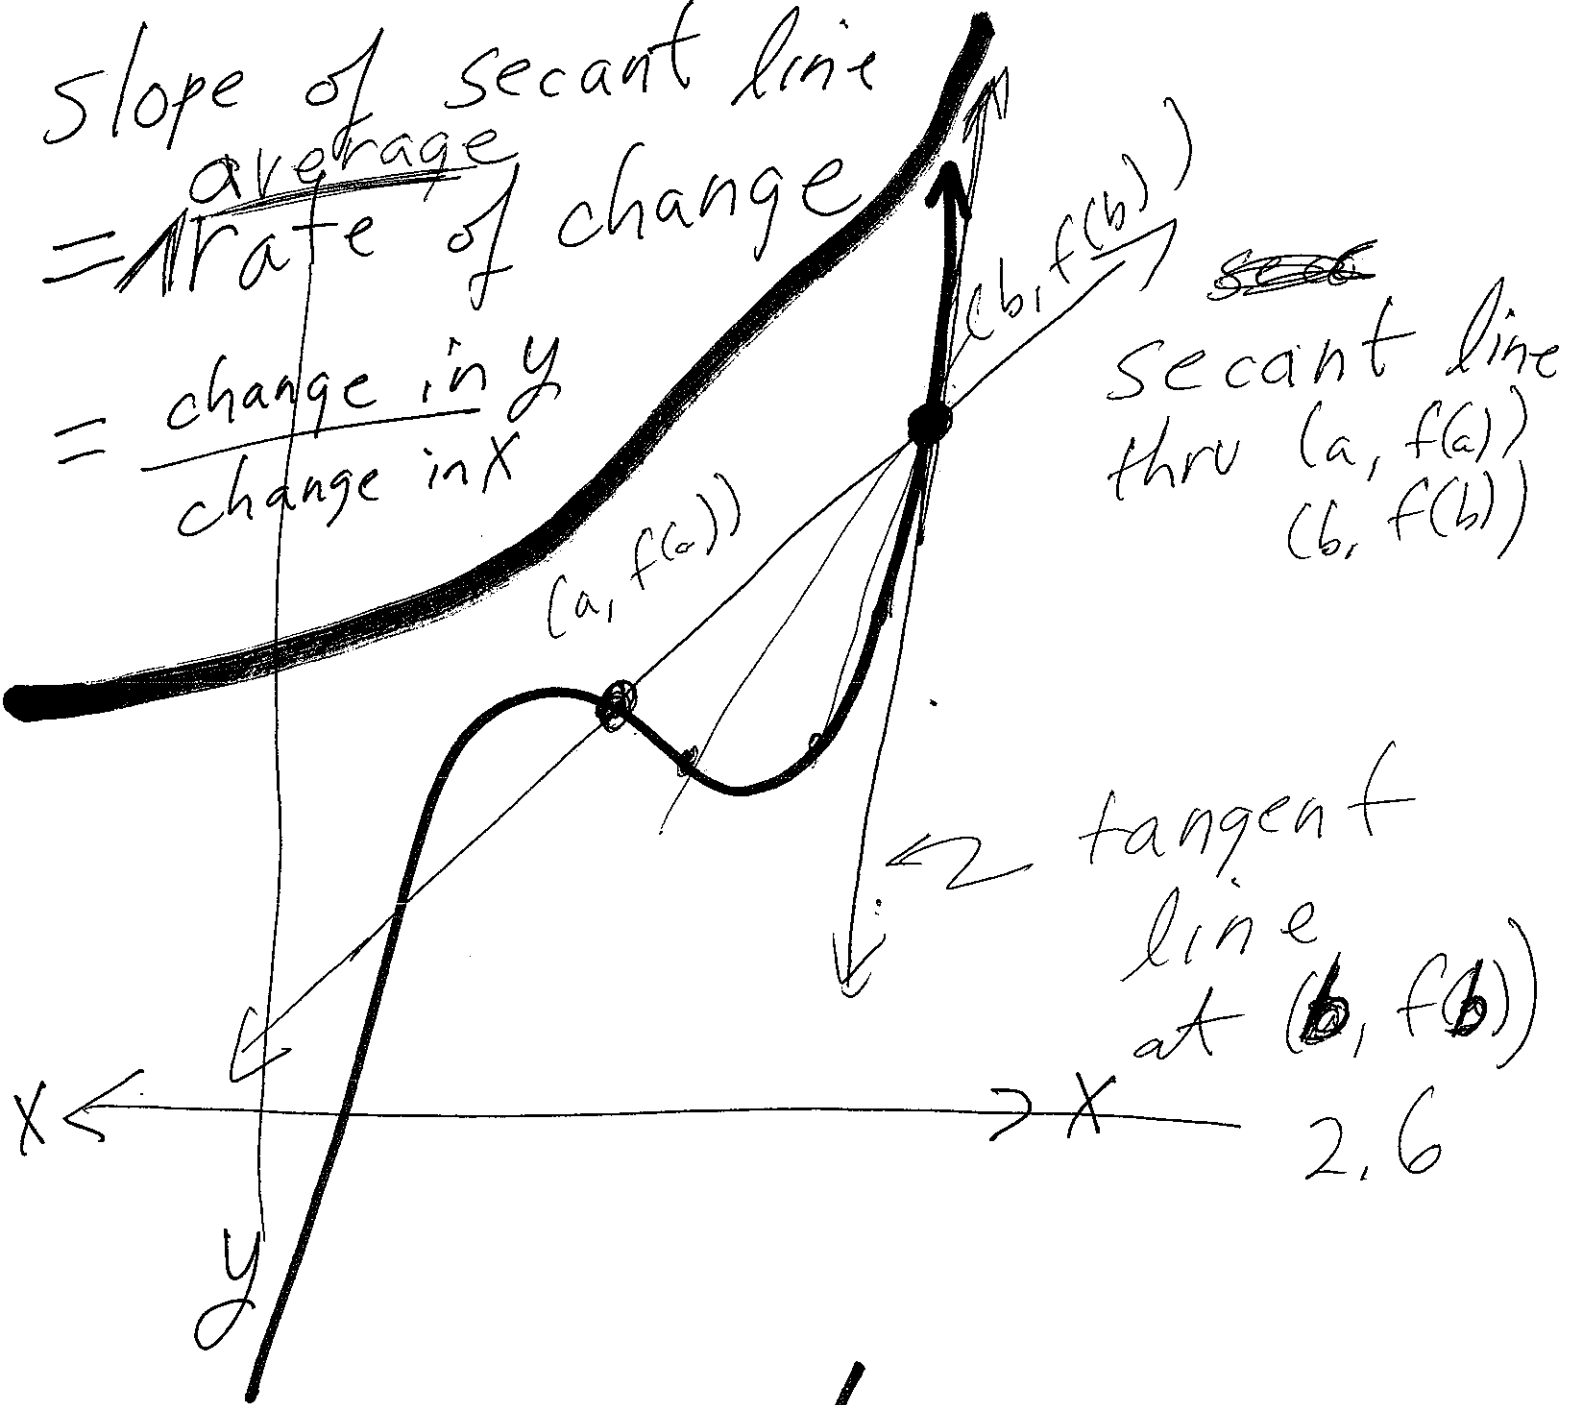 slope of secant line
average
= rate of change
= change in y
change in x
(b, f(b))
secant line
thru (a, f(a))
(b, f(b))
(a, f(a))
tangent
line
at (b, f(b))
x
x
2.6
y